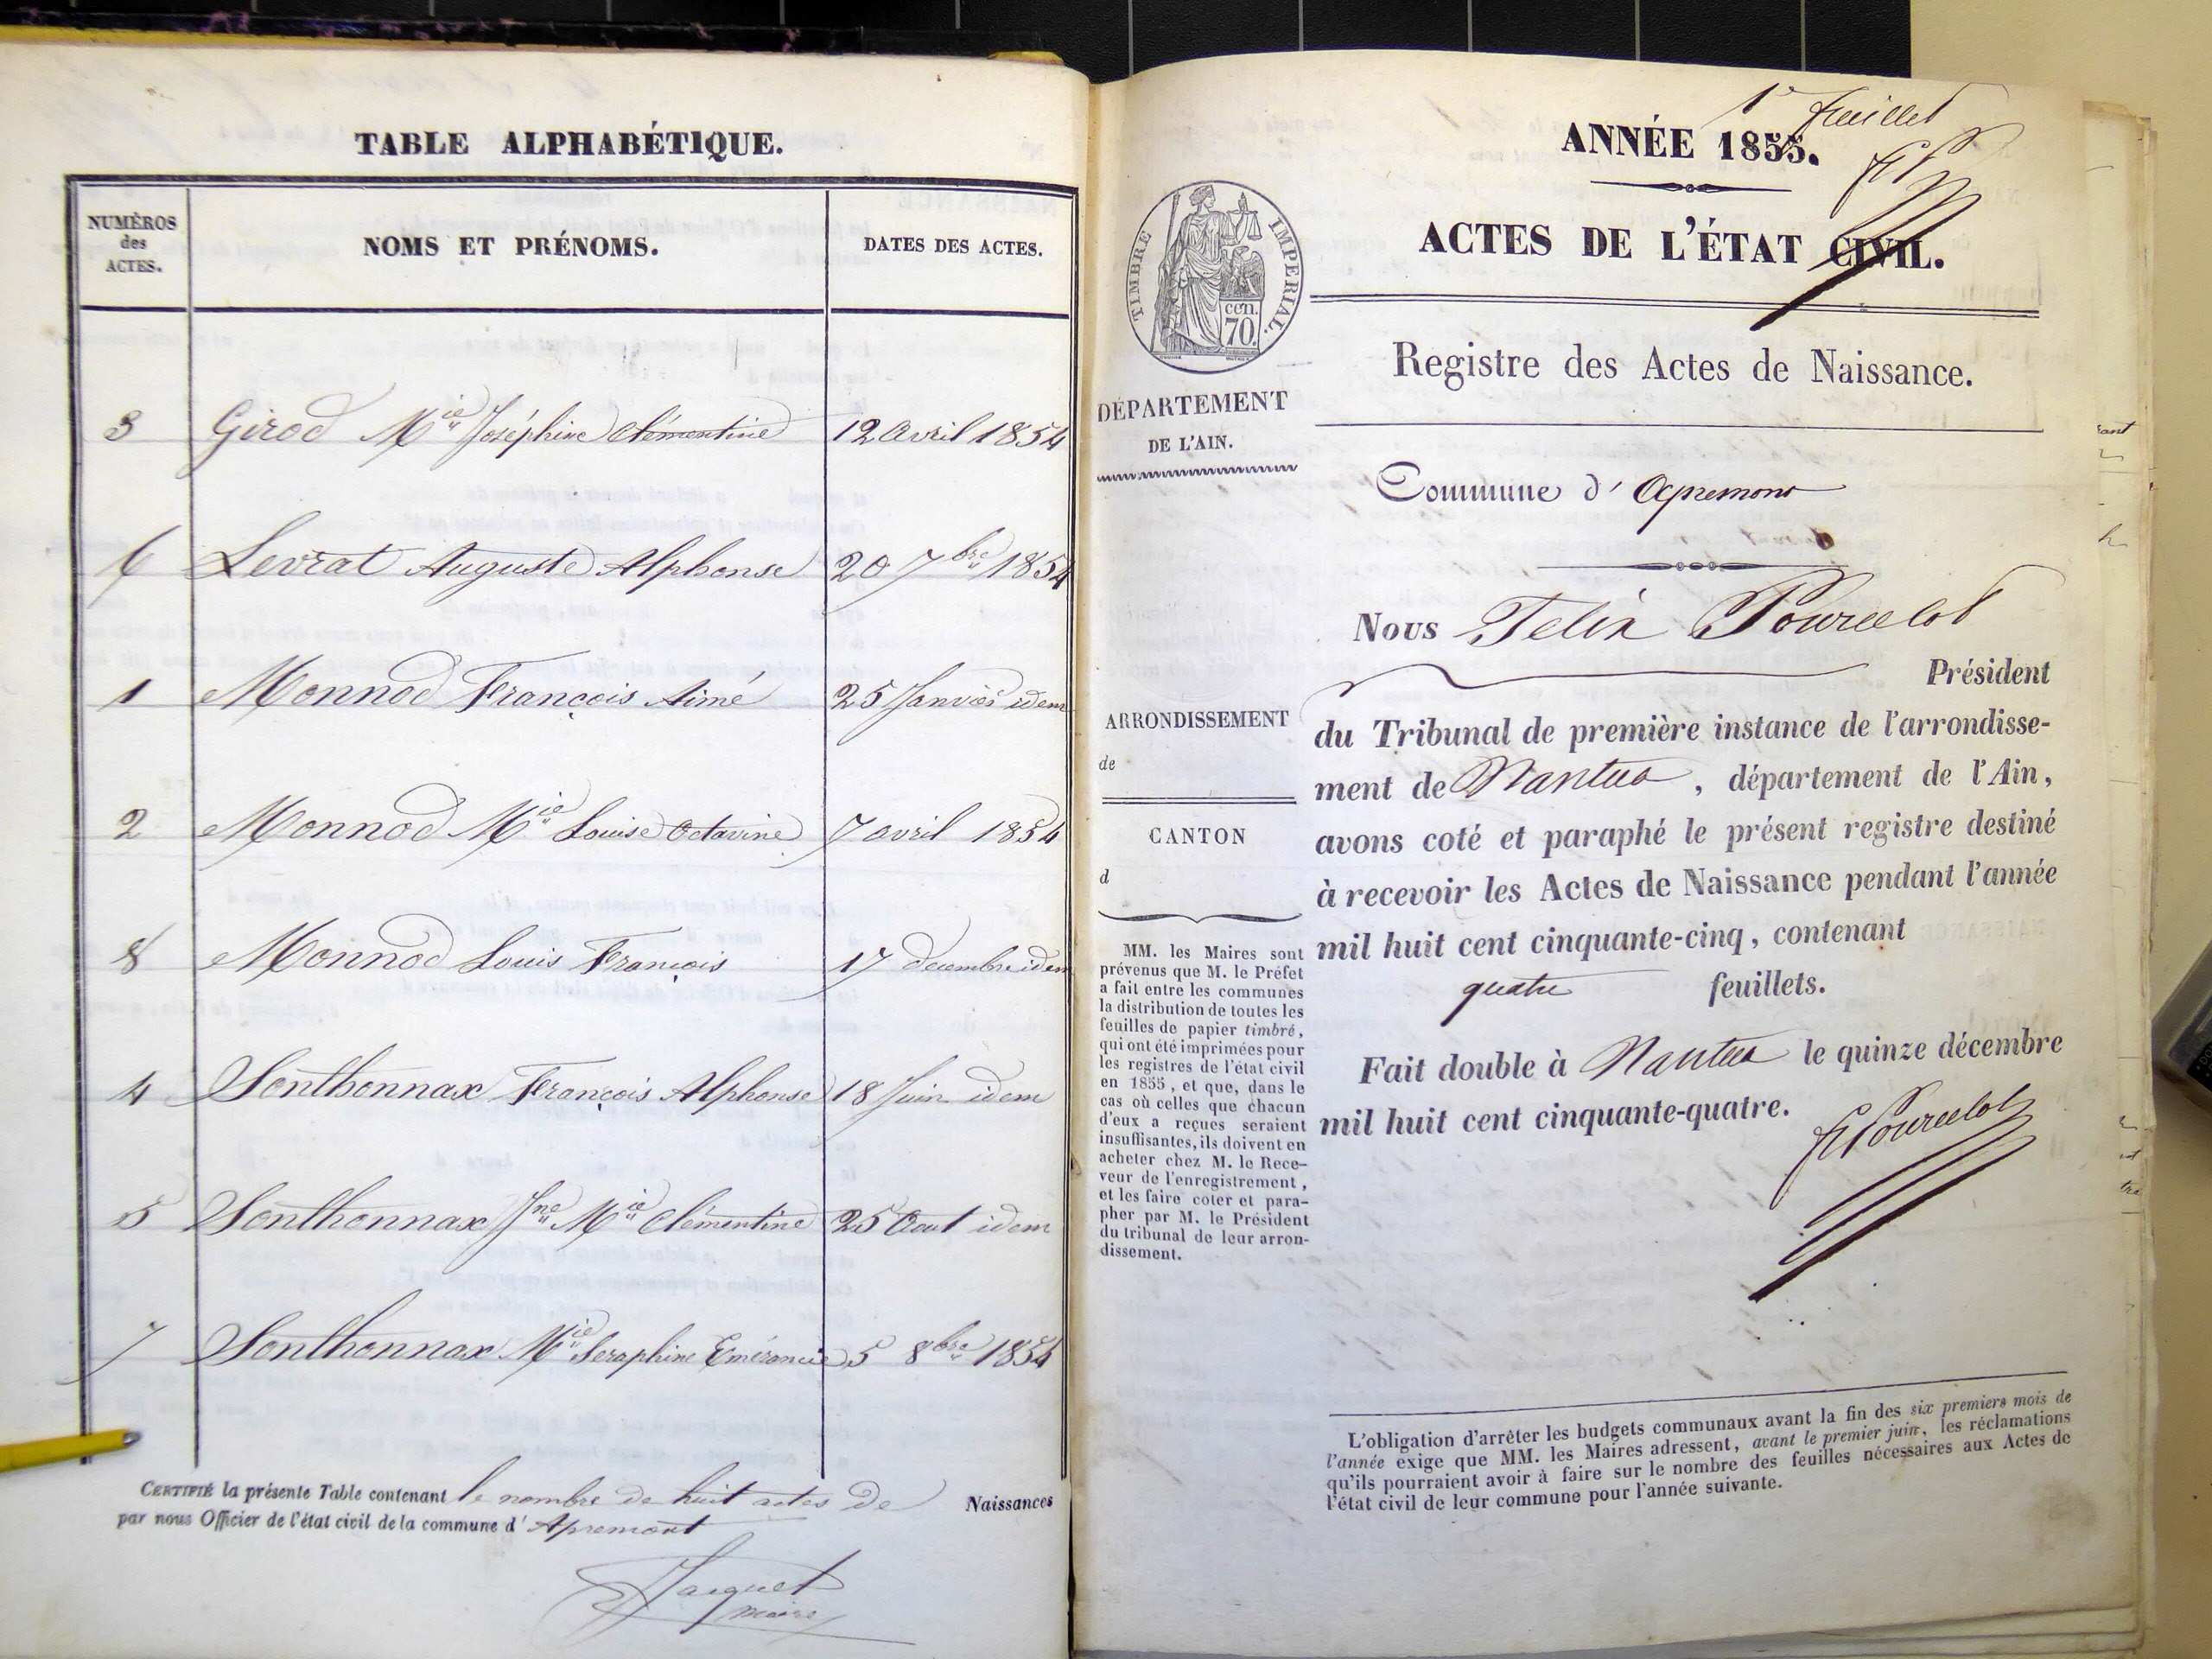 TABLE ALPHABÉTIQUE.
NUMÉROS
des
ACTES.
NOMS ET PRÉNOMS.
DATES DES ACTES.
3 Girod Mie Joséphine Clémentine 12 avril 1854
6 Levrat Auguste Alphonse 20 7bre 1854
1 Monnod François Aimé 25 Janvier idem
2 Monnod Mie Louise Octavine 7 avril 1854
8 Monnod Louis François 17 decembre idem
4 Sonthonnax François Alphonse 18 Juin idem
5 Sonthonnax Jne Mie Clémentine 25 Aout idem
7 Sonthonnax Mie Seraphine Emérancie 5 8bre 1854
CERTIFIÉ la présente Table contenant le nombre de huit actes de Naissances
par nous Officier de l'état civil de la commune d'Apremont
Jacquet
maire
1er feuillet
ANNÉE 1855.
ACTES DE L'ÉTAT CIVIL.
TIMBRE IMPERIAL.
cen.
70.
Registre des Actes de Naissance.
DÉPARTEMENT
DE L'AIN.
Commune d'Apremont
Nous Felix Pourcelot
Président
ARRONDISSEMENT
de
du Tribunal de première instance de l'arrondisse-
ment de Nantua, département de l'Ain,
avons coté et paraphé le présent registre destiné
à recevoir les Actes de Naissance pendant l'année
mil huit cent cinquante-cinq, contenant
quatre feuillets.
Fait double à Nantua le quinze décembre
mil huit cent cinquante-quatre.
F Pourcelot
CANTON
d
MM. les Maires sont
prévenus que M. le Préfet
a fait entre les communes
la distribution de toutes les
feuilles de papier timbré,
qui ont été imprimées pour
les registres de l'état civil
en 1855, et que, dans le
cas où celles que chacun
d'eux a reçues seraient
insuffisantes, ils doivent en
acheter chez M. le Rece-
veur de l'enregistrement,
et les faire coter et para-
pher par M. le Président
du tribunal de leur arron-
dissement.
L'obligation d'arrêter les budgets communaux avant la fin des six premiers mois de
l'année exige que MM. les Maires adressent, avant le premier juin, les réclamations
qu'ils pourraient avoir à faire sur le nombre des feuilles nécessaires aux Actes de
l'état civil de leur commune pour l'année suivante.